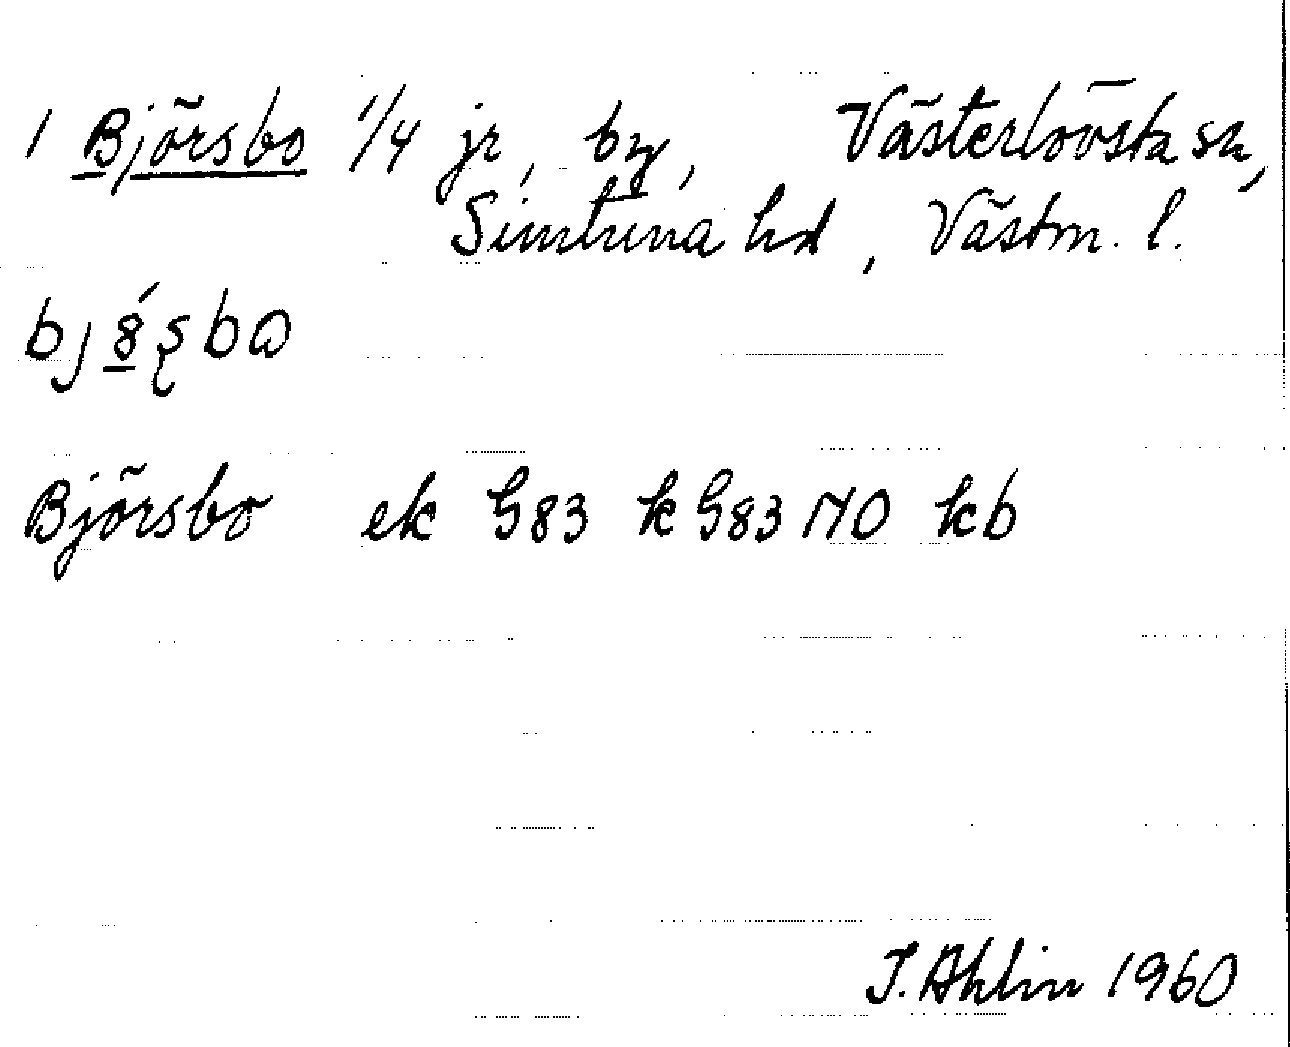 1 Björsbo 1/4 jr, by, Västerlövsta sn,
Simtuna hd, Västm. l.
Björsbo ek G83 k G83 NO kb
J. Ahlin 1960